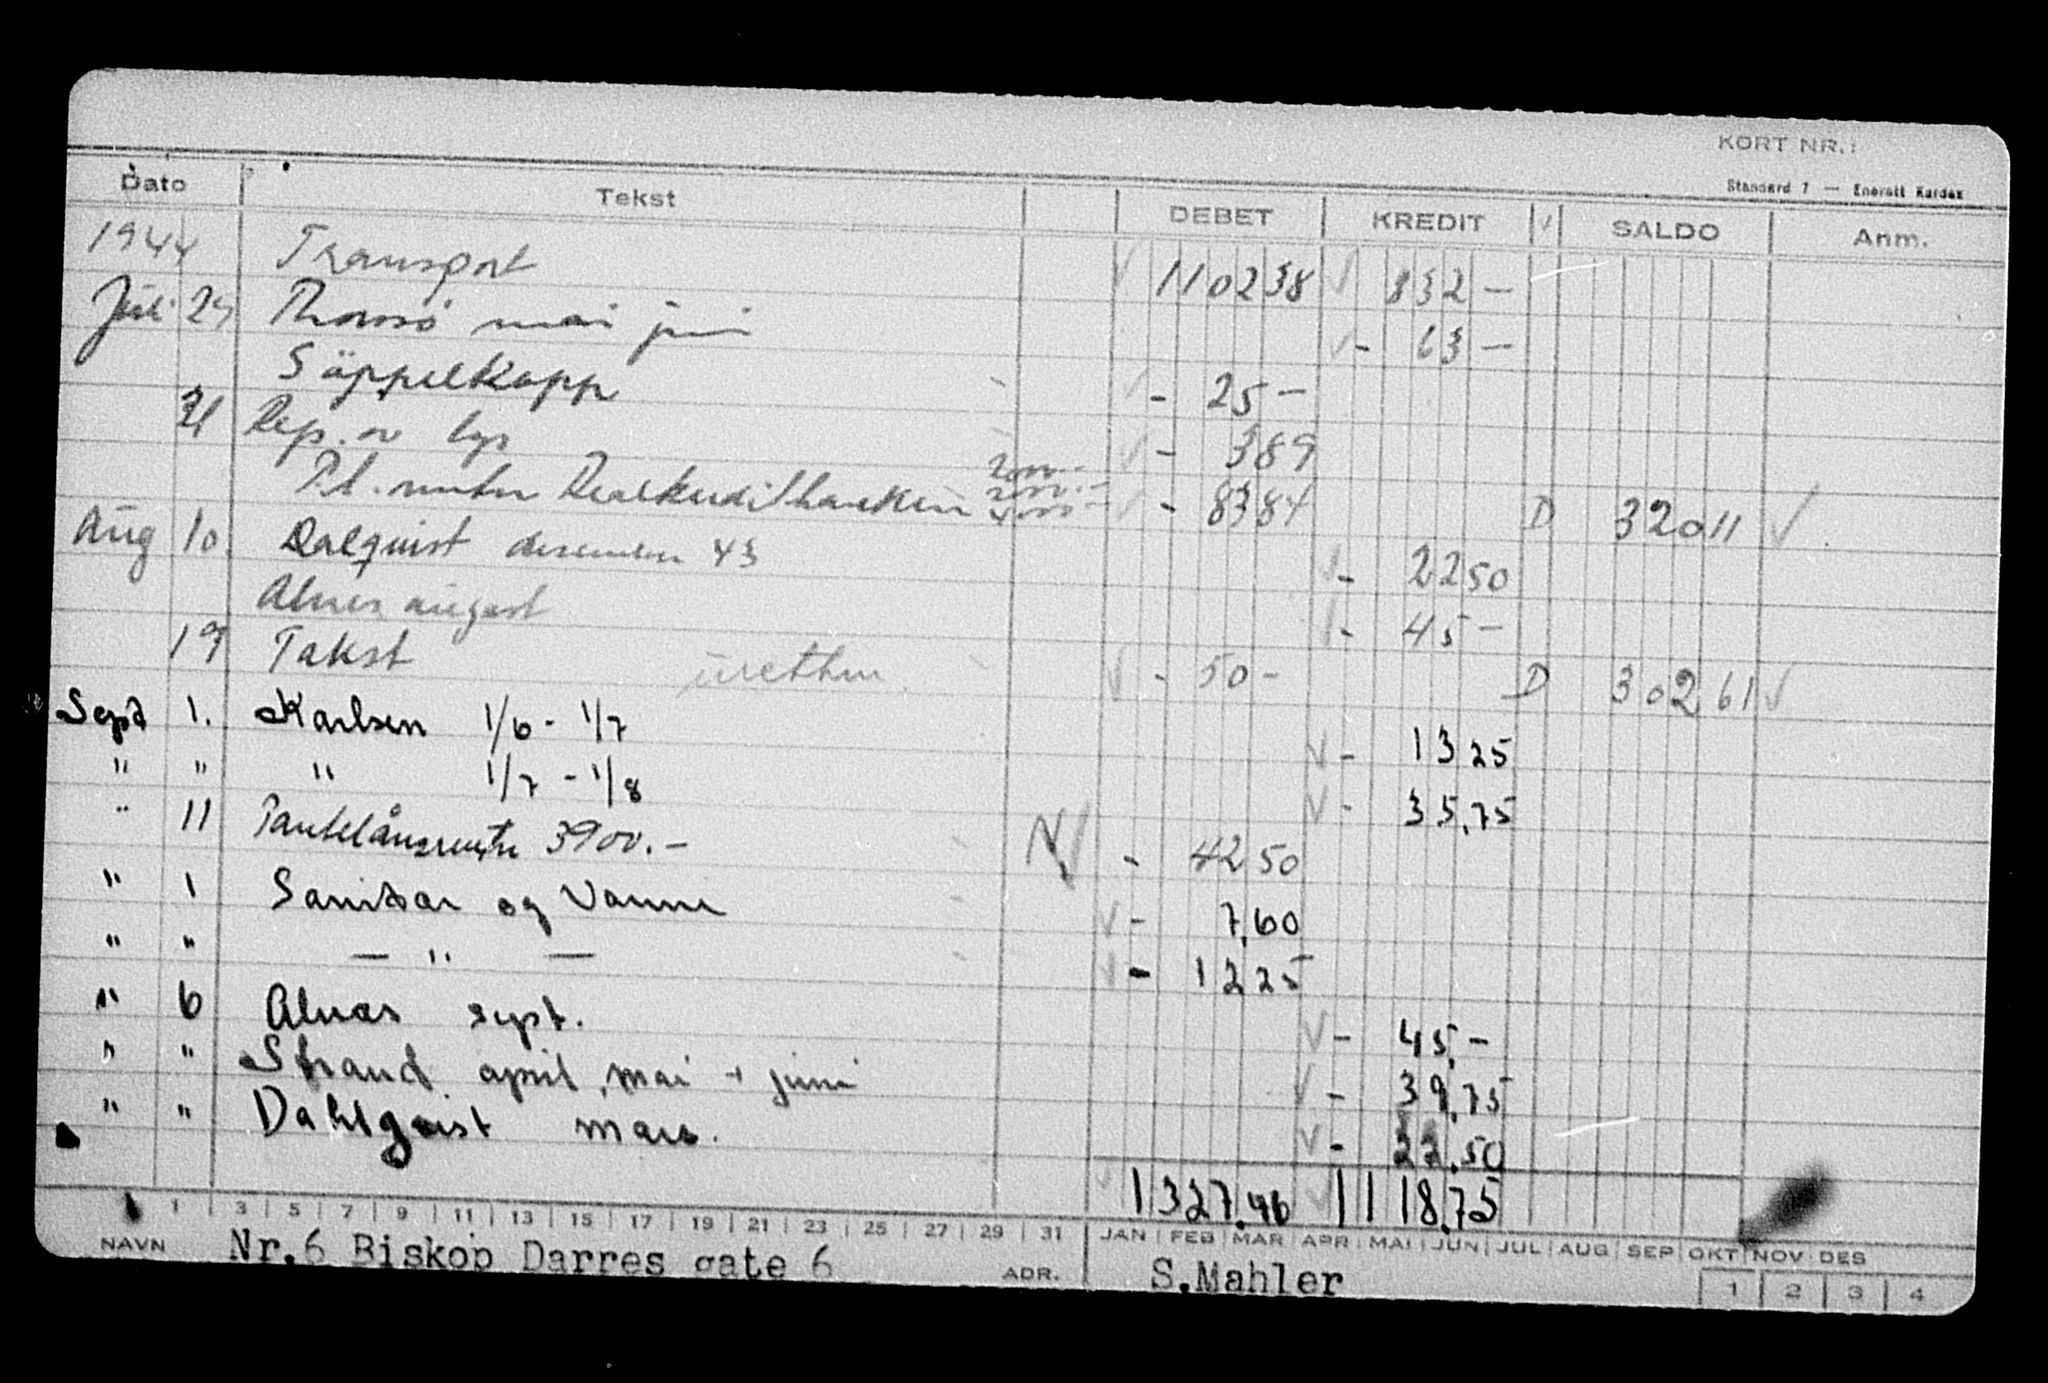 KORT NR.:
Standard 7 — Enerett Kardex
Dato Tekst DEBET KREDIT √ SALDO Anm.
1944 Transport 1102 38 832 —
Juli 25 Thorsø mai juni - 63 —
Søppelkapp - 25 —
31 Rep. av lys - 3 89
Pt. renter Realkreditbanken - 83 84 D 320 11
Aug 10. Dalquist desember 43 - 22 50
Alnæs august - 45 —
19 Takst - 50 - D 302 61
Sept 1. Karlsen 1/6 - 1/7 - 13 25
" " " 1/7 - 1/8 - 35,75
" 11 Pantelånsrente 3900.— - 42 50
" 1 Sanitær og Vann - 7,60
" " — " — - 12 25
" 6 Alnæs sept. - 45,-
" " Strand april, mai + juni - 39,75
" " Dahlqvist mars. - 22,50
1327,46 1118,75
1 3 5 7 9 11 13 15 17 19 21 23 25 27 29 31 JAN FEB MAR APR MAI JUN JUL AUG SEP OKT NOV DES
NAVN Nr.6 Biskop Darres gate 6 ADR. S.Mahler
1 2 3 4